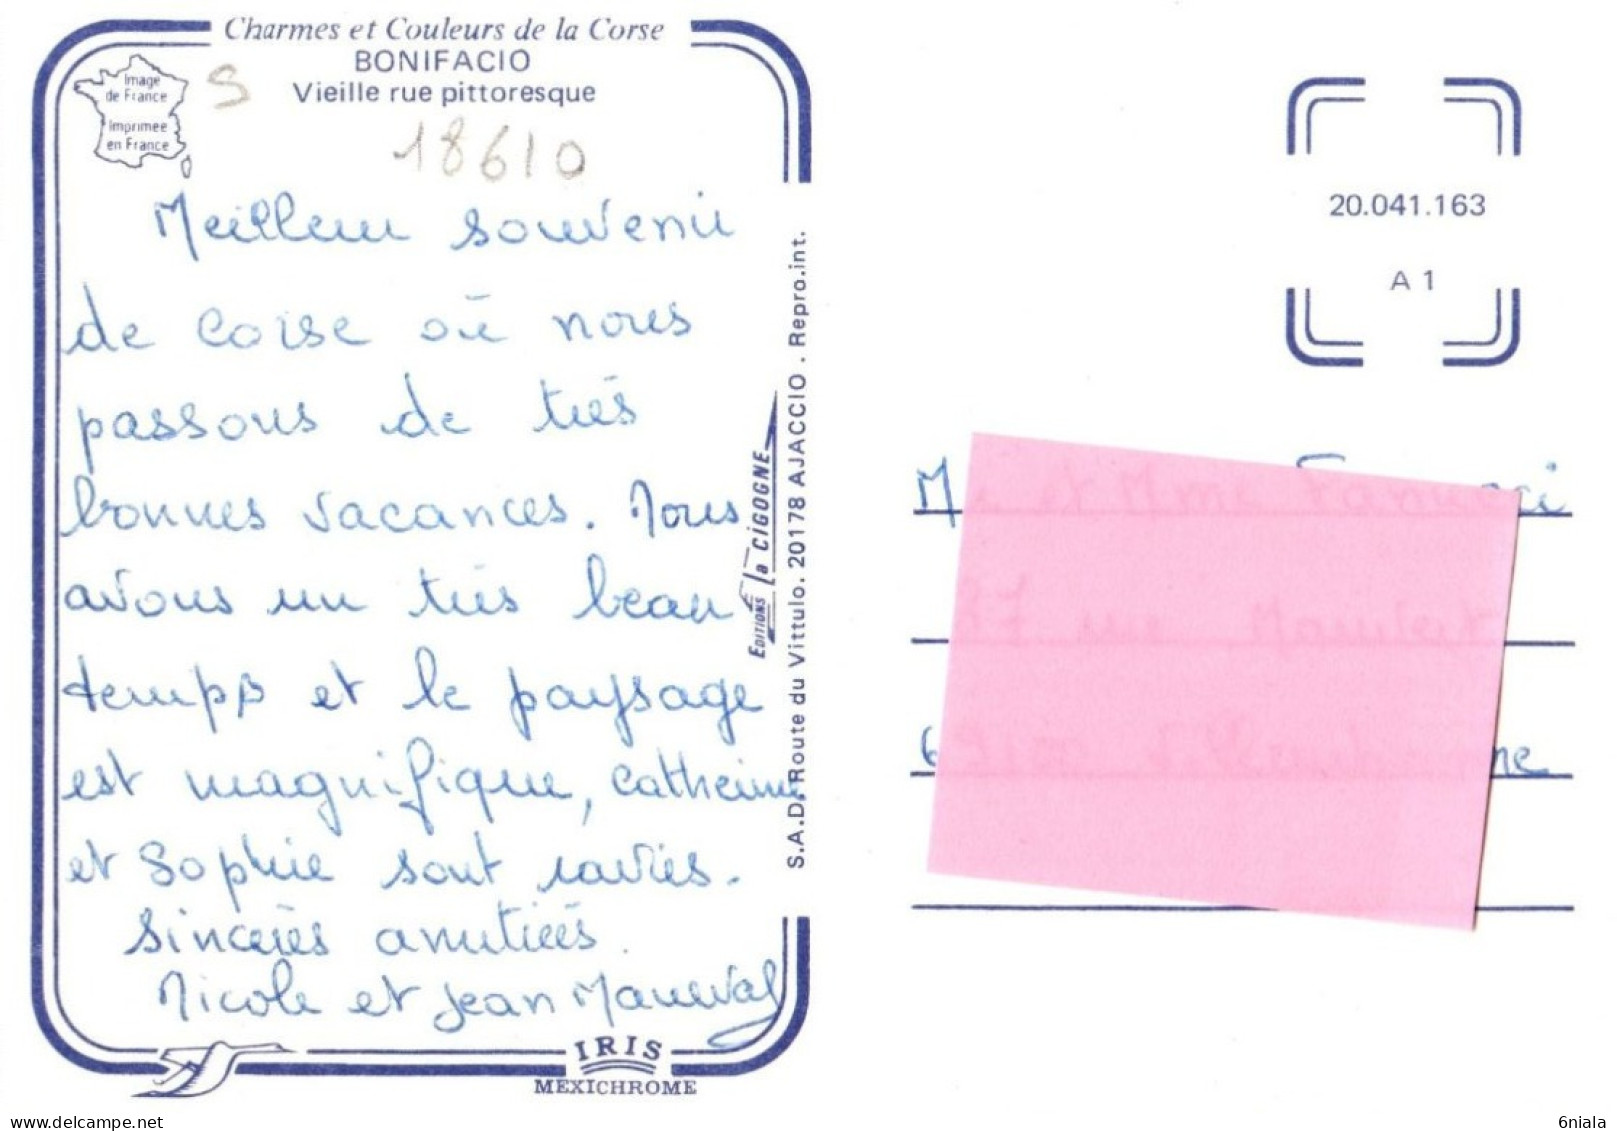 Charmes et Couleurs de la Corse
BONIFACIO
Vieille rue pittoresque
Image
de France
Imprimée
en France
S
18610
Meilleur souvenir
de Corse où nous
passons de très
bonnes vacances. Nous
avons un très beau
temps et le paysage
est magnifique, Catherine
et Sophie sont ravies.
Sincères amitiés.
Nicole et Jean
EDITIONS la CIGOGNE
S.A.D. Route du Vittulo. 20178 AJACCIO . Repro.int.
IRIS
MEXICHROME
20.041.163
A 1
Mr et Mme
rue
delcampe.net
6niala